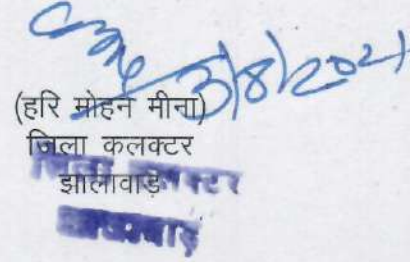 3/8/2021
(हरि मोहन मीना)
जिला कलक्टर
झालावाड़
जिला कलक्टर
झालावाड़